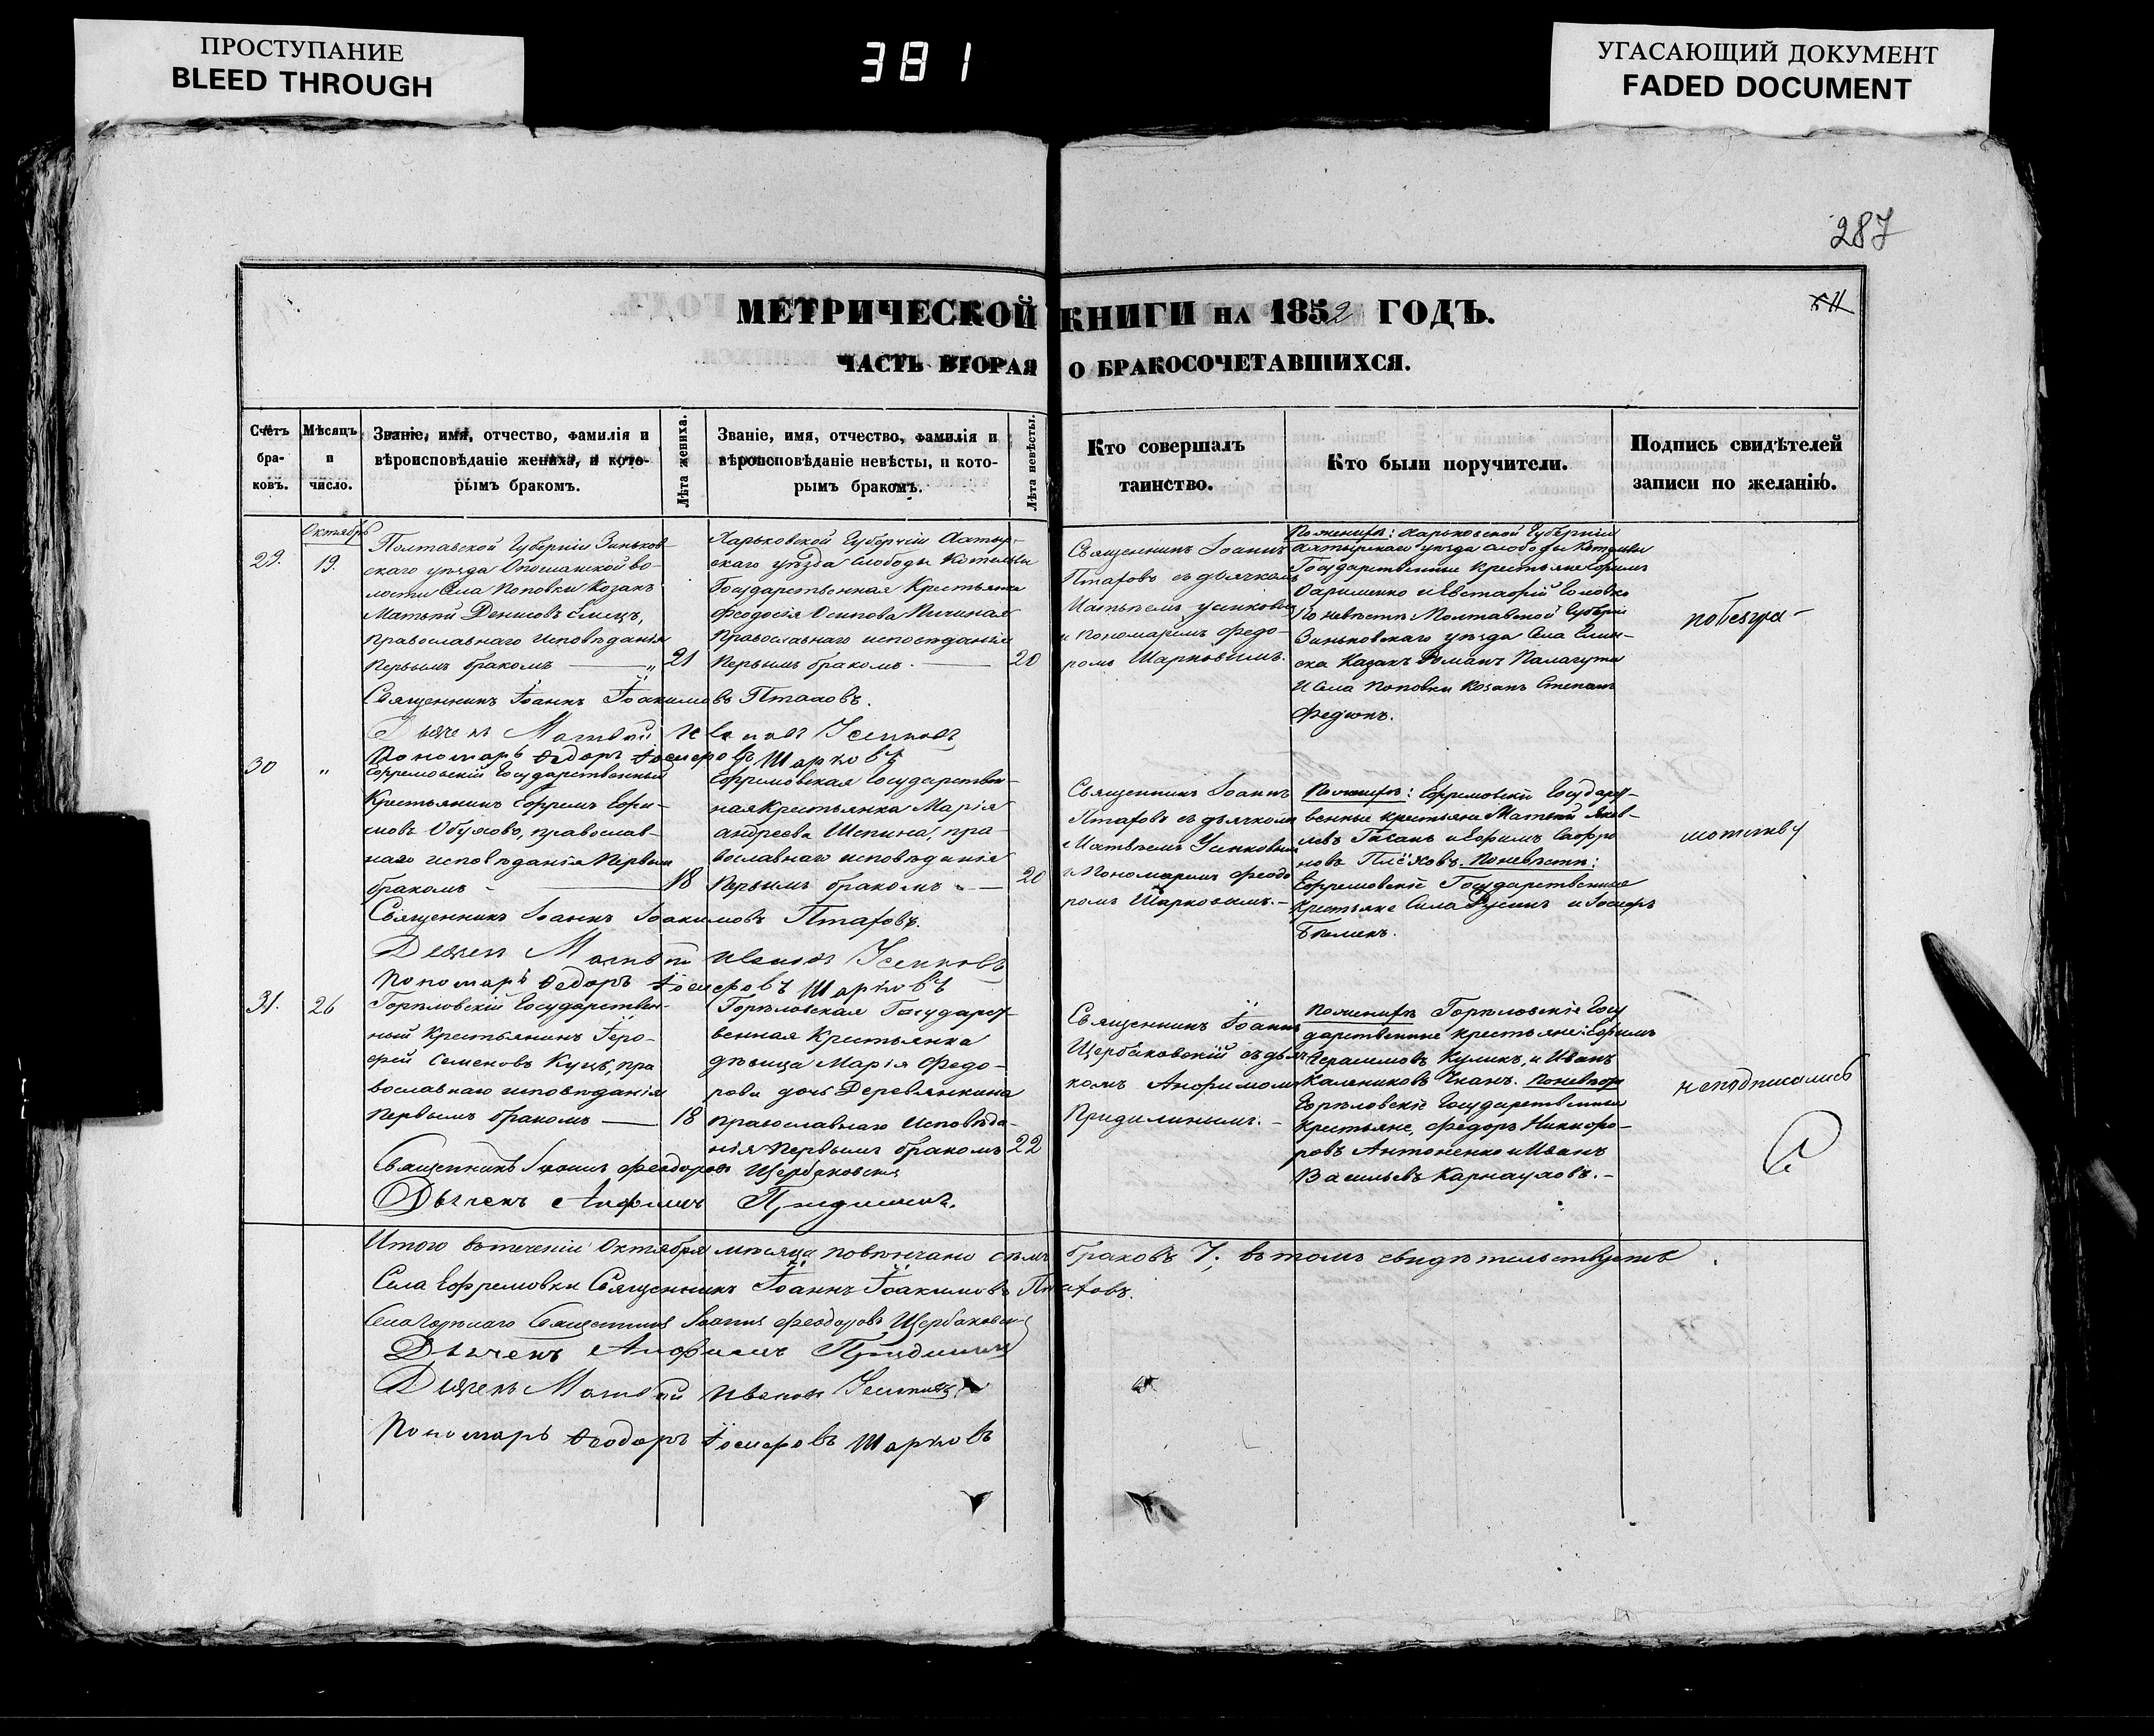 ПРОСТУПАНИЕ
BLEED THROUGH
381
УГАСАЮЩИЙ ДОКУМЕНТ
FADED DOCUMENT
287
МЕТРИЧЕСКОЙ КНИГИ НА 1852 ГОДЪ.
ЧАСТЬ ВТОРАЯ О БРАКОСОЧЕТАВШИХСЯ.
Счетъ бра-ковъ.
Мѣсяцъ и число.
Званіе, имя, отчество, фамилія и
вѣроисповѣданіе жениха, и кото-
рымъ бракомъ.
Лѣта жениха.
Званіе, имя, отчество, фамилія и
вѣроисповѣданіе невѣсты, и кото-
рымъ бракомъ.
Лѣта невѣсты.
Кто совершалъ
таинство.
Кто были поручители.
Подпись свидѣтелей
записи по желанію.
29.
Октябрь
19.
Полтавской Губерніи Зиньков-
скаго уѣзда Опошнанской во-
лости Села Поповки Козакъ
Матѣй Денисовъ Емецъ,
православнаго исповѣданія
первымъ бракомъ 21
Харьковской Губерніи Ахтыр-
скаго уѣзда Слободы Котельвы
Государственная Крестьянка
Феодосія Осипова
православнаго исповѣданія
первымъ бракомъ. 20
Священникъ Іоаннъ
Птаховъ съ дьячкомъ
Матѣемъ
и Пономаремъ Федо-
ромъ Шарковымъ.
По женихѣ: Харьковской Губерніи
Ахтырскаго уѣзда слободы Котельвы
Государственные крестьяне Ефимъ
и Евстафій Головко
По невѣстѣ: Полтавской Губерніи
Зиньковскаго уѣзда Села
Казакъ Романъ
и Села Поповки Козакъ Степанъ
Федюкъ.
Священникъ Іоаннъ Іоакимовъ Птаховъ.
Дьячекъ Матвѣй Ивановъ
Пономарь Ѳедоръ Іосифовъ Шарковъ
30
"
Ефремовскій Государственный
Крестьянинъ Ефремъ Ефи-
мовъ Обуховъ, православ-
наго исповѣданія первымъ
бракомъ - 18
Ефремовская Государствен-
ная Крестьянка Марія
Андреева Шепина, пра-
вославнаго исповѣданія
первымъ бракомъ 20
Священникъ Іоаннъ
Птаховъ съ дьячкомъ
Матвѣемъ
и Пономаремъ Феодо
ромъ Шарковымъ.-
По женихѣ: Ефремовскіе Государст-
венные крестьяне Матвѣй Яков-
левъ и Ефимъ Сафро
новъ Плёховъ. По невѣстѣ:
Ефремовскіе Государственные
крестьяне Сила Русинъ и Іосифъ
Священникъ Іоаннъ Іоакимовъ Птаховъ.
Дьячекъ Матвѣй Ивановъ
Пономарь Ѳедоръ Іосифовъ Шарковъ
31.
26
Горѣловскій Государствен-
ный Крестьянинъ Геро-
фей Семеновъ Куцъ, пра
вославнаго исповѣданія
первымъ бракомъ 18
Горѣловская Государст-
венная Крестьянка
дѣвица Марія Федо-
рова дочь Деревянкина
православнаго исповѣда-
нія первымъ бракомъ 22
Священникъ Іоаннъ
Щербаковскій съ дьяч-
комъ Анфимомъ
Придилинымъ.-
По женихѣ Горѣловскіе Госу
дарственные крестьяне: Ефимъ
Герасимовъ Куликъ, и Иванъ
По невѣстѣ
Горѣловскіе Государственные
крестьяне, Федоръ Никифо-
ровъ Антоненко и Иванъ
Васильевъ Карнауховъ.-
неподписались
Священникъ Іоаннъ Феодоровъ Щербаковскій
Дьячекъ Анфимъ Придилинъ.
Итого втеченіи Октября мѣсяца повѣнчано семь браковъ 7; въ томъ свидѣтельствуетъ
Села Ефремовки Священникъ Іоаннъ Іоакимовъ Птаховъ.
Села Горѣлаго Священникъ Іоаннъ Феодоровъ Щербаковскій
Дьячекъ Анфимъ Придилинъ
Дьячекъ Матвѣй Ивановъ
Пономарь Ѳеодоръ Іосифовъ Шарковъ